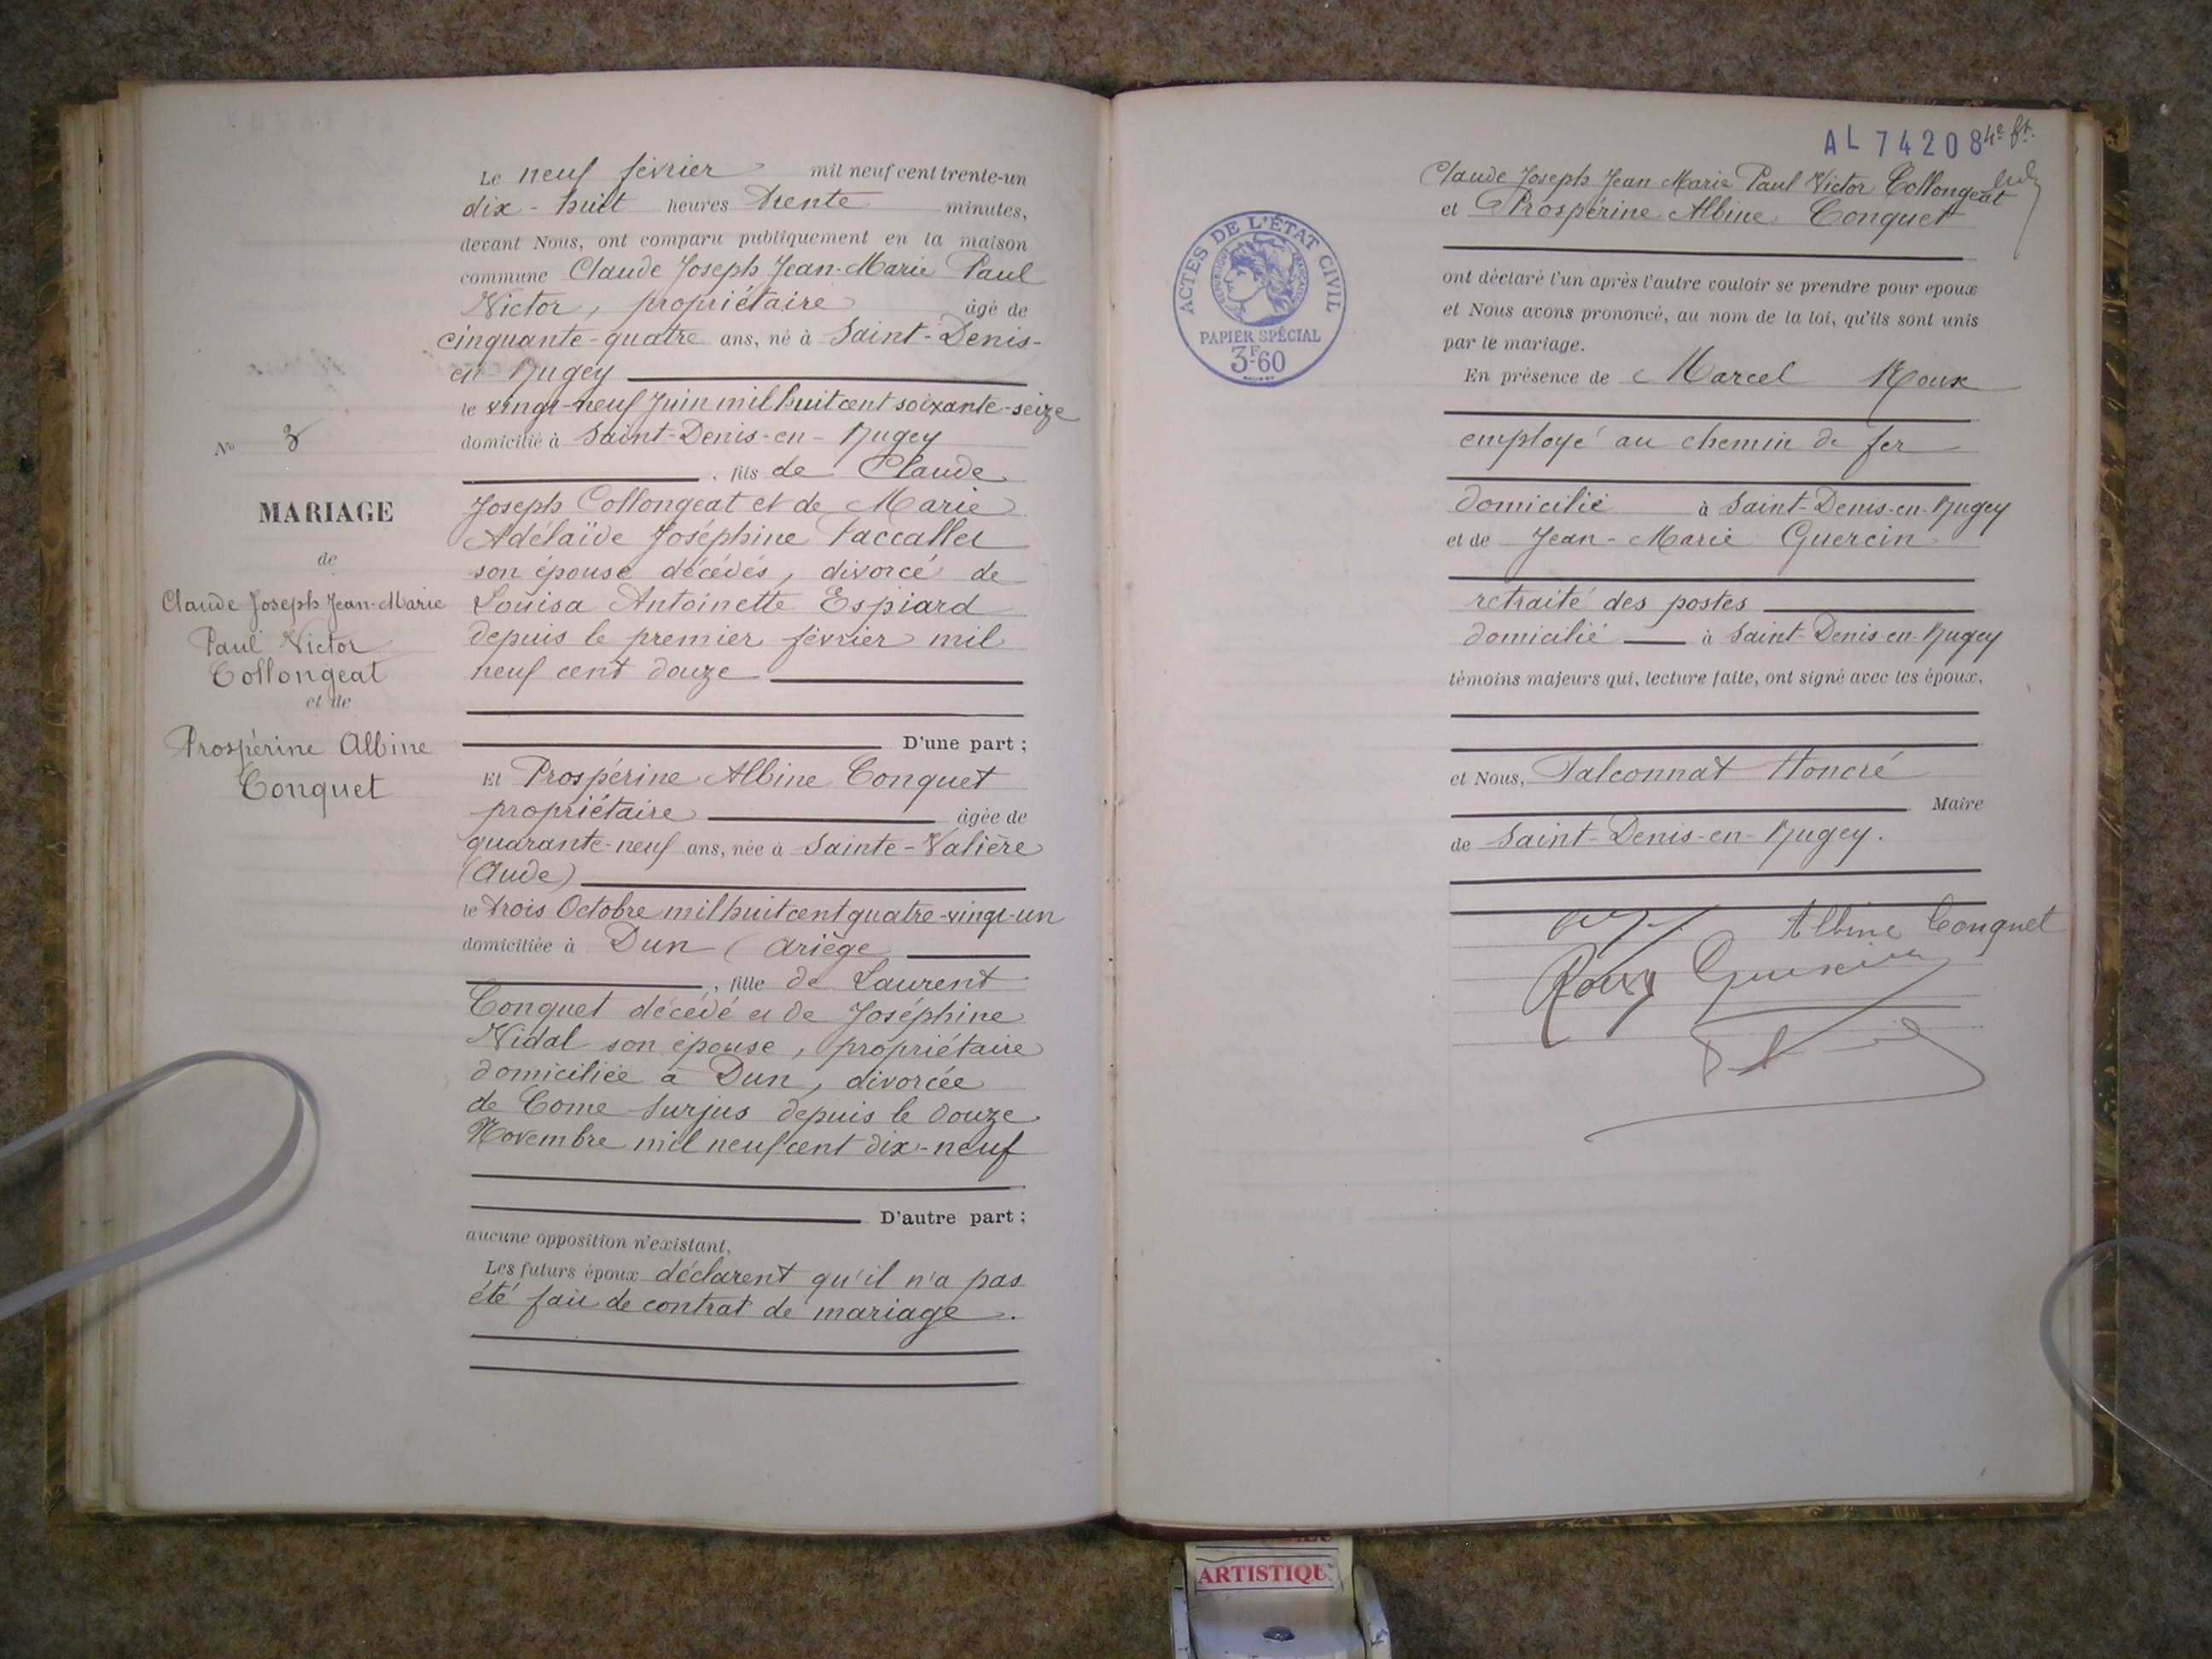 Le neuf février mil neuf cent trente-un
dix-huit heures trente minutes,
devant Nous, ont comparu publiquement en la maison
commune Claude Joseph Jean-Marie Paul
Victor, propriétaire âgé de
cinquante-quatre ans, né à Saint-Denis-
en-Bugey
le vingt-neuf Juin mil huit cent soixante-seize
domicilié à Saint-Denis-en-Bugey
, fils de Claude
Joseph Collongeat et de Marie
Adélaïde Joséphine
son épouse décédés, divorcé de
Louisa Antoinette Espiard
depuis le premier février mil
neuf cent douze
D'une part ;
Et Prospérine Albine Conquet
propriétaire âgée de
quarante-neuf ans, née à Sainte-Valière
(Aude)
le trois Octobre mil huit cent quatre-vingt-un
domiciliée à Dun (Ariège
, fille de Laurent
Conquet décédé et de Joséphine
Vidal son épouse, propriétaire
domiciliée à Dun, divorcée
de Come Surjus depuis le douze
Novembre mil neuf cent dix-neuf
D'autre part ;
aucune opposition n'existant,
Les futurs époux déclarent qu'il n'a pas
été fait de contrat de mariage.
No 3
MARIAGE
de
Claude Joseph Jean-Marie
Paul Victor
Collongeat
et de
Prospérine Albine
Conquet
AL 74208 4e ft.
Claude Joseph Jean Marie Paul Victor Collongeat
et Prospérine Albine Conquet
ont déclaré l'un après l'autre vouloir se prendre pour époux
et Nous avons prononcé, au nom de la loi, qu'ils sont unis
par le mariage.
En présence de Marcel Roux
employé au chemin de fer
domicilié à Saint-Denis-en-Bugey
et de Jean-Marie Guercin
retraité des postes
domicilié à Saint-Denis-en-Bugey
témoins majeurs qui, lecture faite, ont signé avec les époux,
et Nous, Falconnat Honoré
Maire
de Saint-Denis-en-Bugey.
Albine Conquet
Roux Guercin
ACTES DE L'ÉTAT CIVIL
RÉPUBLIQUE FRANÇAISE
PAPIER SPÉCIAL
3F60
ARTISTIQU